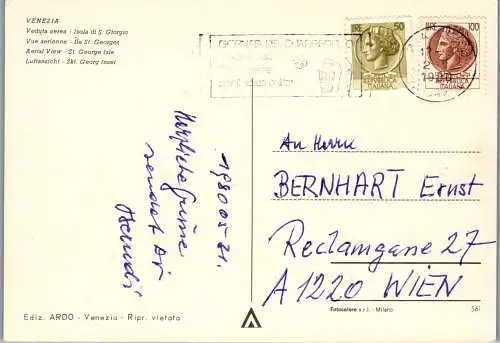 VENEZIA
Veduta aerea - Isola di S. Giorgio
Vue aerienne - Île St. Georges
Aerial View - St. George Isle
Luftansicht - Skt. Georg Insel
LIRE 50
REPUBBLICA
ITALIANA
LIRE 100
REPUBBLICA
ITALIANA
1980
19800521.
Herzliche Grüsse
sendet Dir
An Herrn
BERNHART Ernst
Reclamgasse 27
A 1220 WIEN
Ediz. ARDO - Venezia - Ripr. vietata
Fotocelere s.r.l. - Milano
561